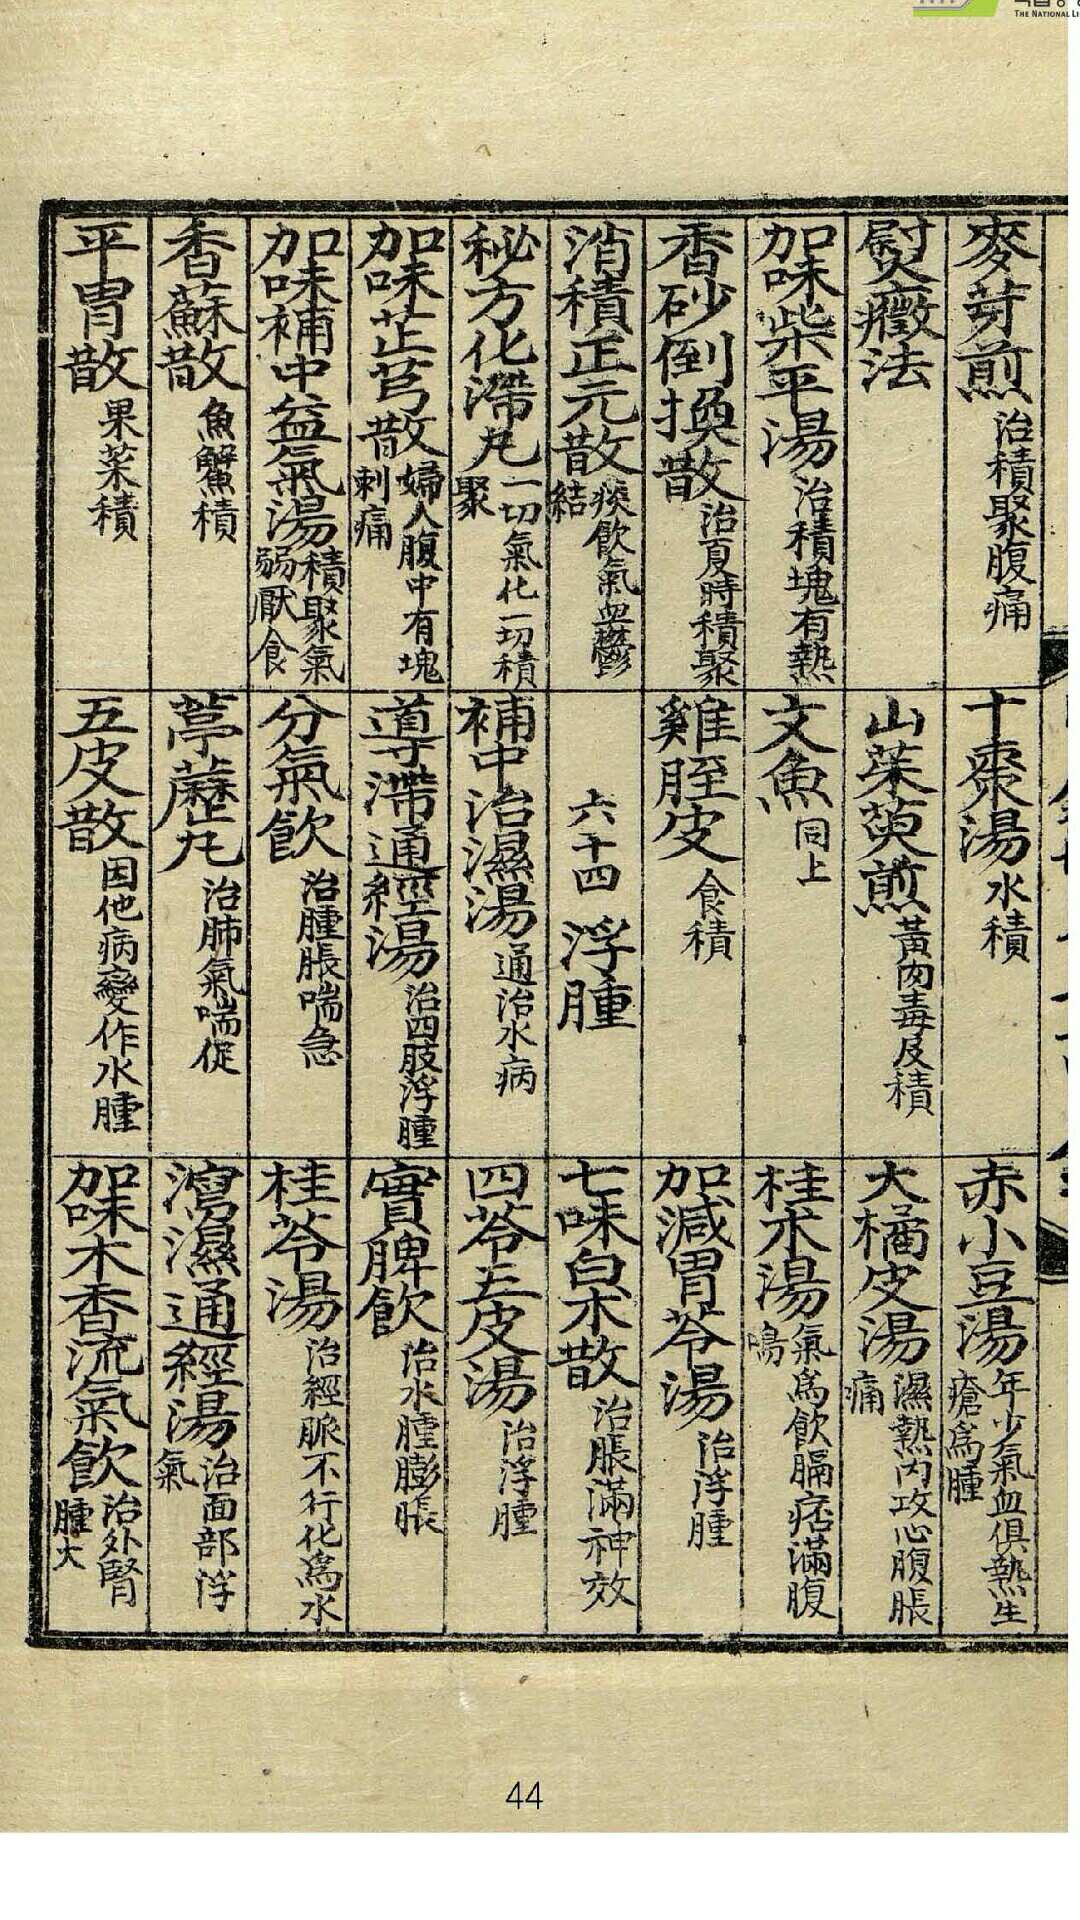 THE NATIONAL LI
麥芽煎 治積聚腹痛
熨癥法
加味柴平湯 治積塊有熱
香砂倒換散 治夏時積聚
消積正元散 痰飮氣血鬱結
秘方化滯丸 一切氣化一切積聚
加味芷芎散 婦人腹中有塊刺痛
加味補中益氣湯 積聚氣弱厭食
香蘇散 魚蟹積
平胃散 果菜積
十棗湯 水積
山茱萸煎 黃肉毒及積
文魚 同上
雞脛皮 食積
六十四 浮腫
補中治濕湯 通治水病
導滯通經湯 治四肢浮腫
分氣飮 治腫脹喘急
葶藶丸 治肺氣喘促
五皮散 因他病變作水腫
赤小豆湯 年少氣血俱熱生瘡爲腫
大橘皮湯 濕熱內攻心腹脹痛
桂朮湯 氣爲飮膈痞滿腹鳴
加減胃苓湯 治浮腫
七味白朮散 治脹滿神效
四苓五皮湯 治浮腫
實脾飮 治水腫膨脹
桂苓湯 治經脈不行化爲水
瀉濕通經湯 治面部浮氣
加味木香流氣飮 治外腎腫大
44